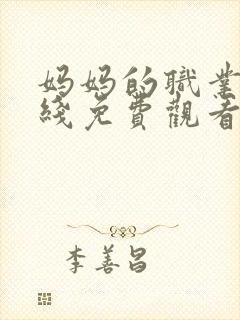 妈妈的職業
綫免費觀看
李善昌